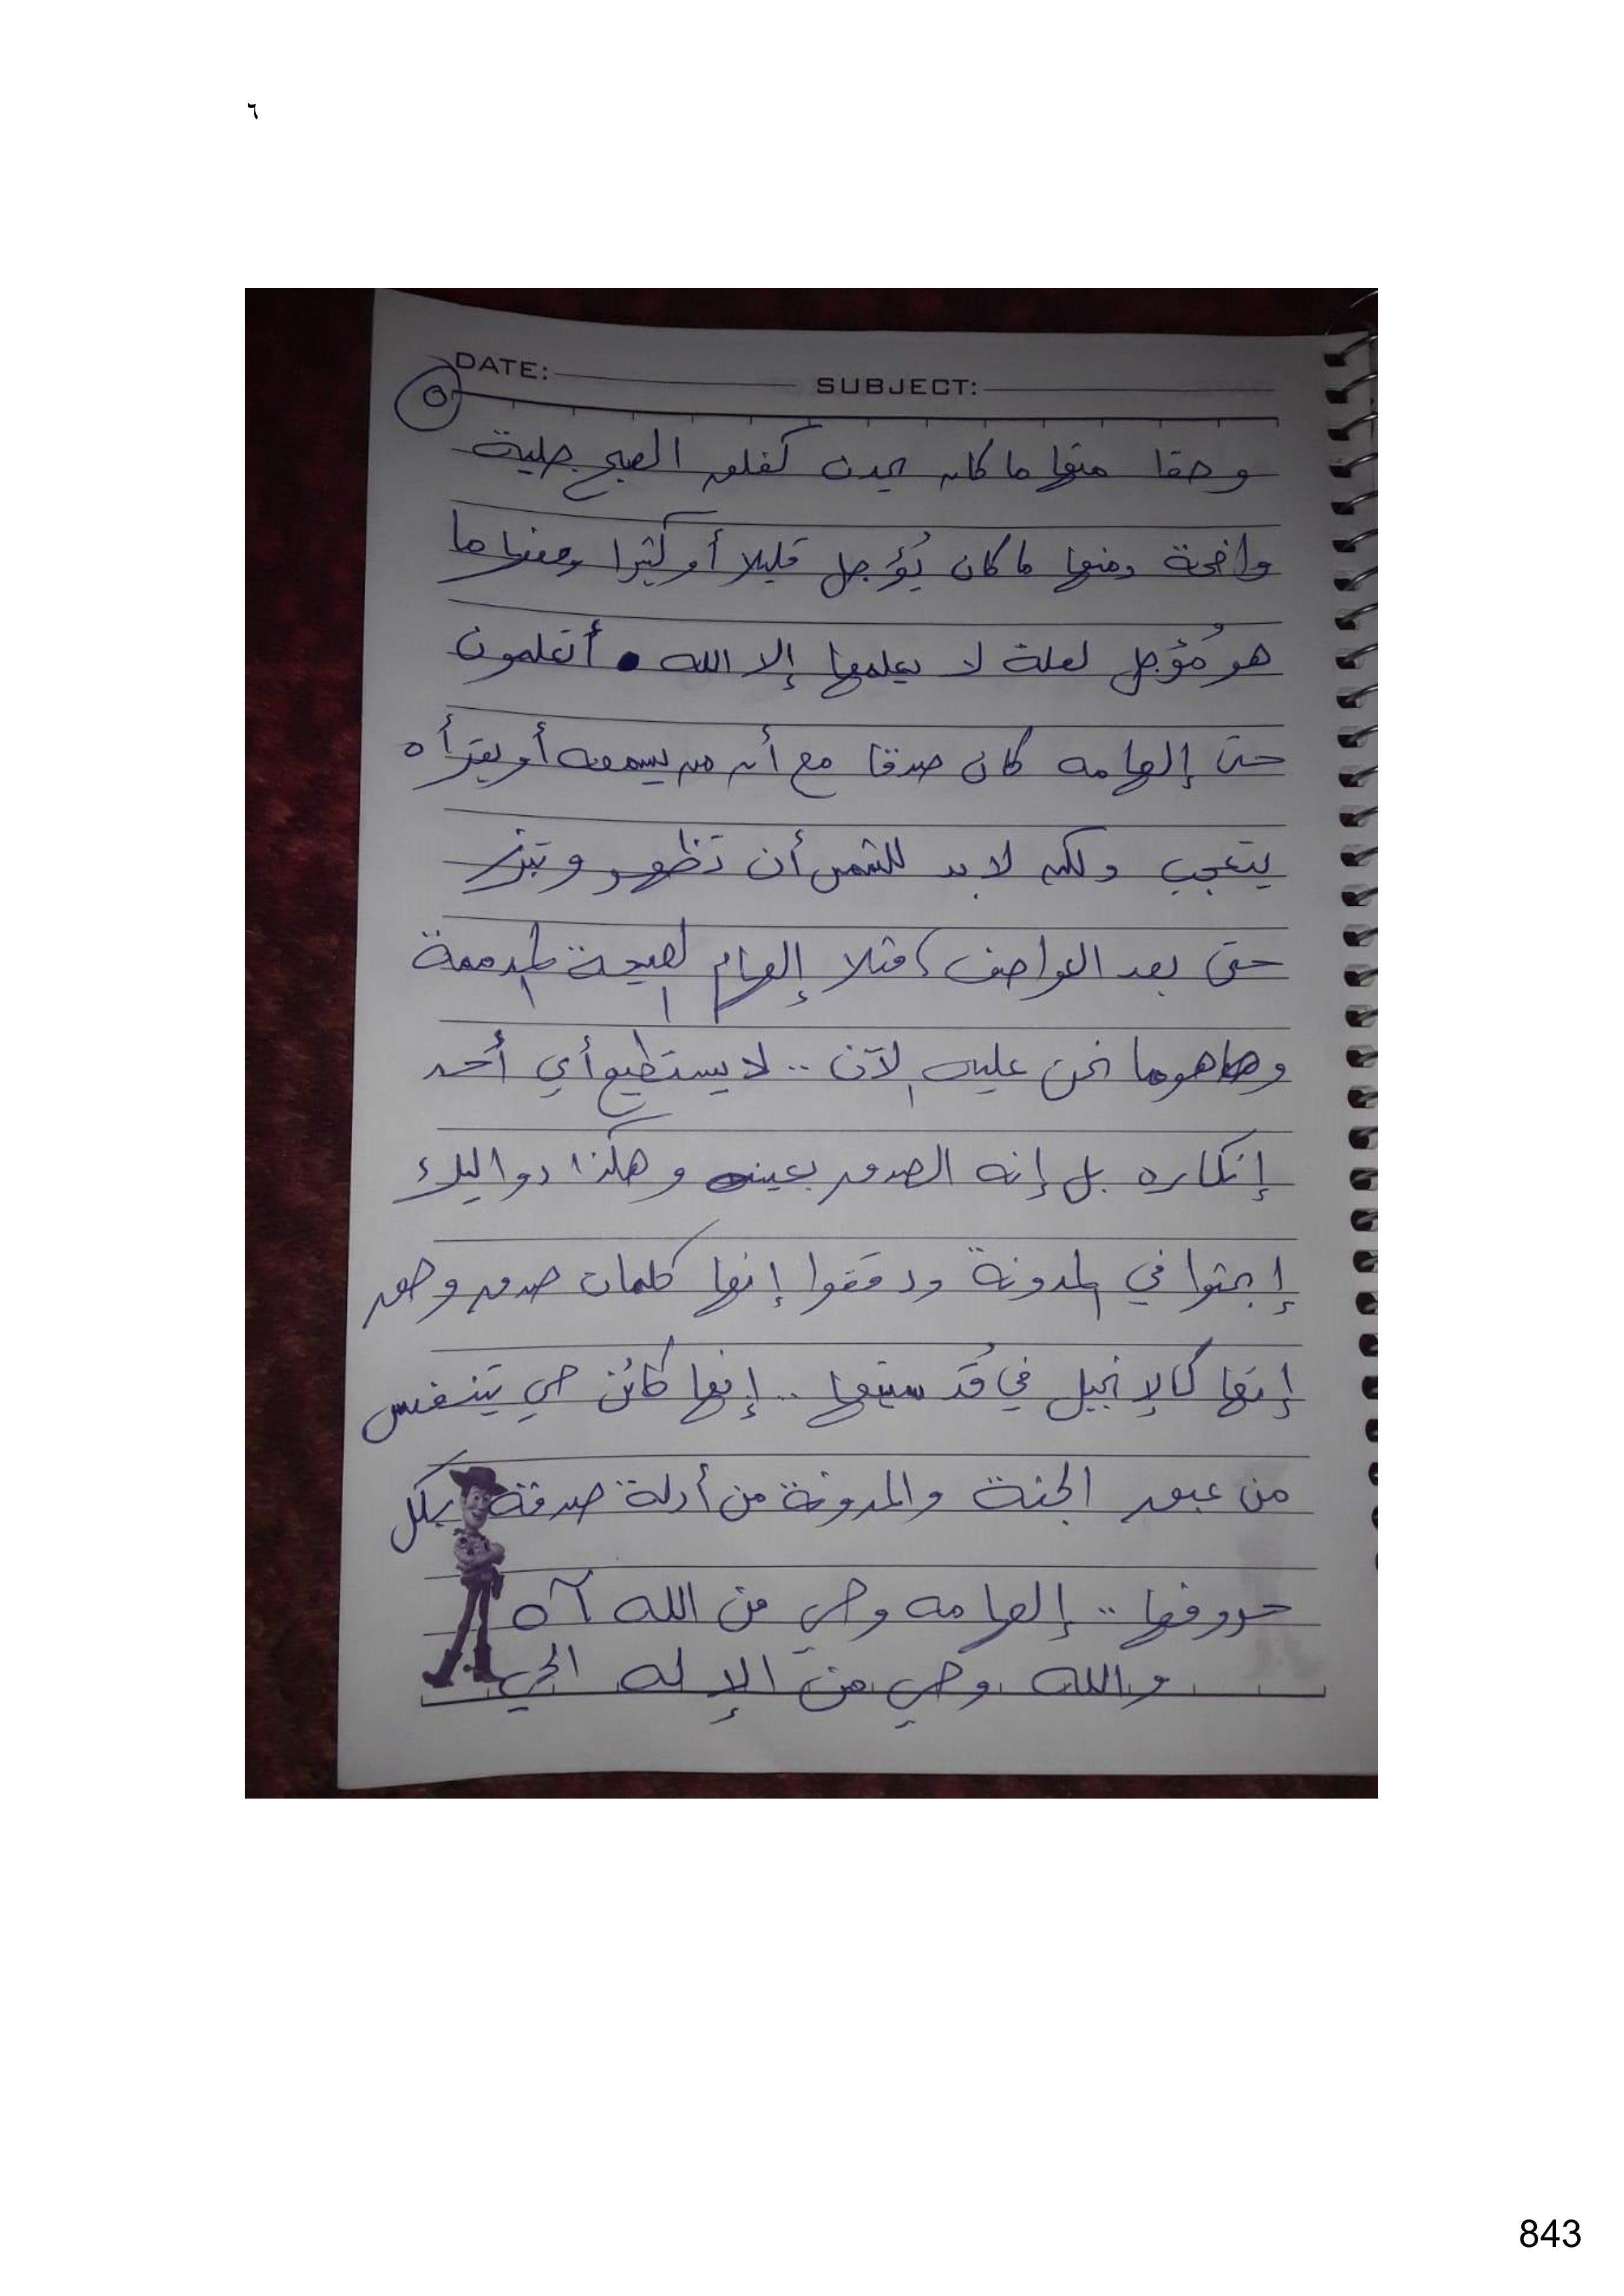 ٦
DATE: SUBJECT:
٥
وحقا منها ما كان يحدث كفلق الصبح جلية
واضحة ومنها ما كان يُؤجل قليلا أو كثيرا ومنها ما
هو مُؤجل لعلة لا يعلمها إلا الله . أتعلمون
حتى إلهامه كان صدقا مع أن من يسمعه أو يقرأه
يتعجب ولكن لا بد للشمس أن تظهر وتبزر
حتى بعد العواصف، مثلا إلهام الصيحة المدممة
وها هو ما نحن عليه الآن .. لا يستطيع أي أحد
إنكاره بل إنه الصدق بعينه وهكذا دواليك
إبحثوا في المدونة ودققوا إنها كلمات صدق وحق
إنها كالإنجيل في قُدسيتها .. إنها كائن حي يتنفس
من عبق الجنة والمدونة من أدلة صدقه بكل
حروفها .. إلهامه وحيٍ من الله آه
والله وحيٍ من الإله الحي
843